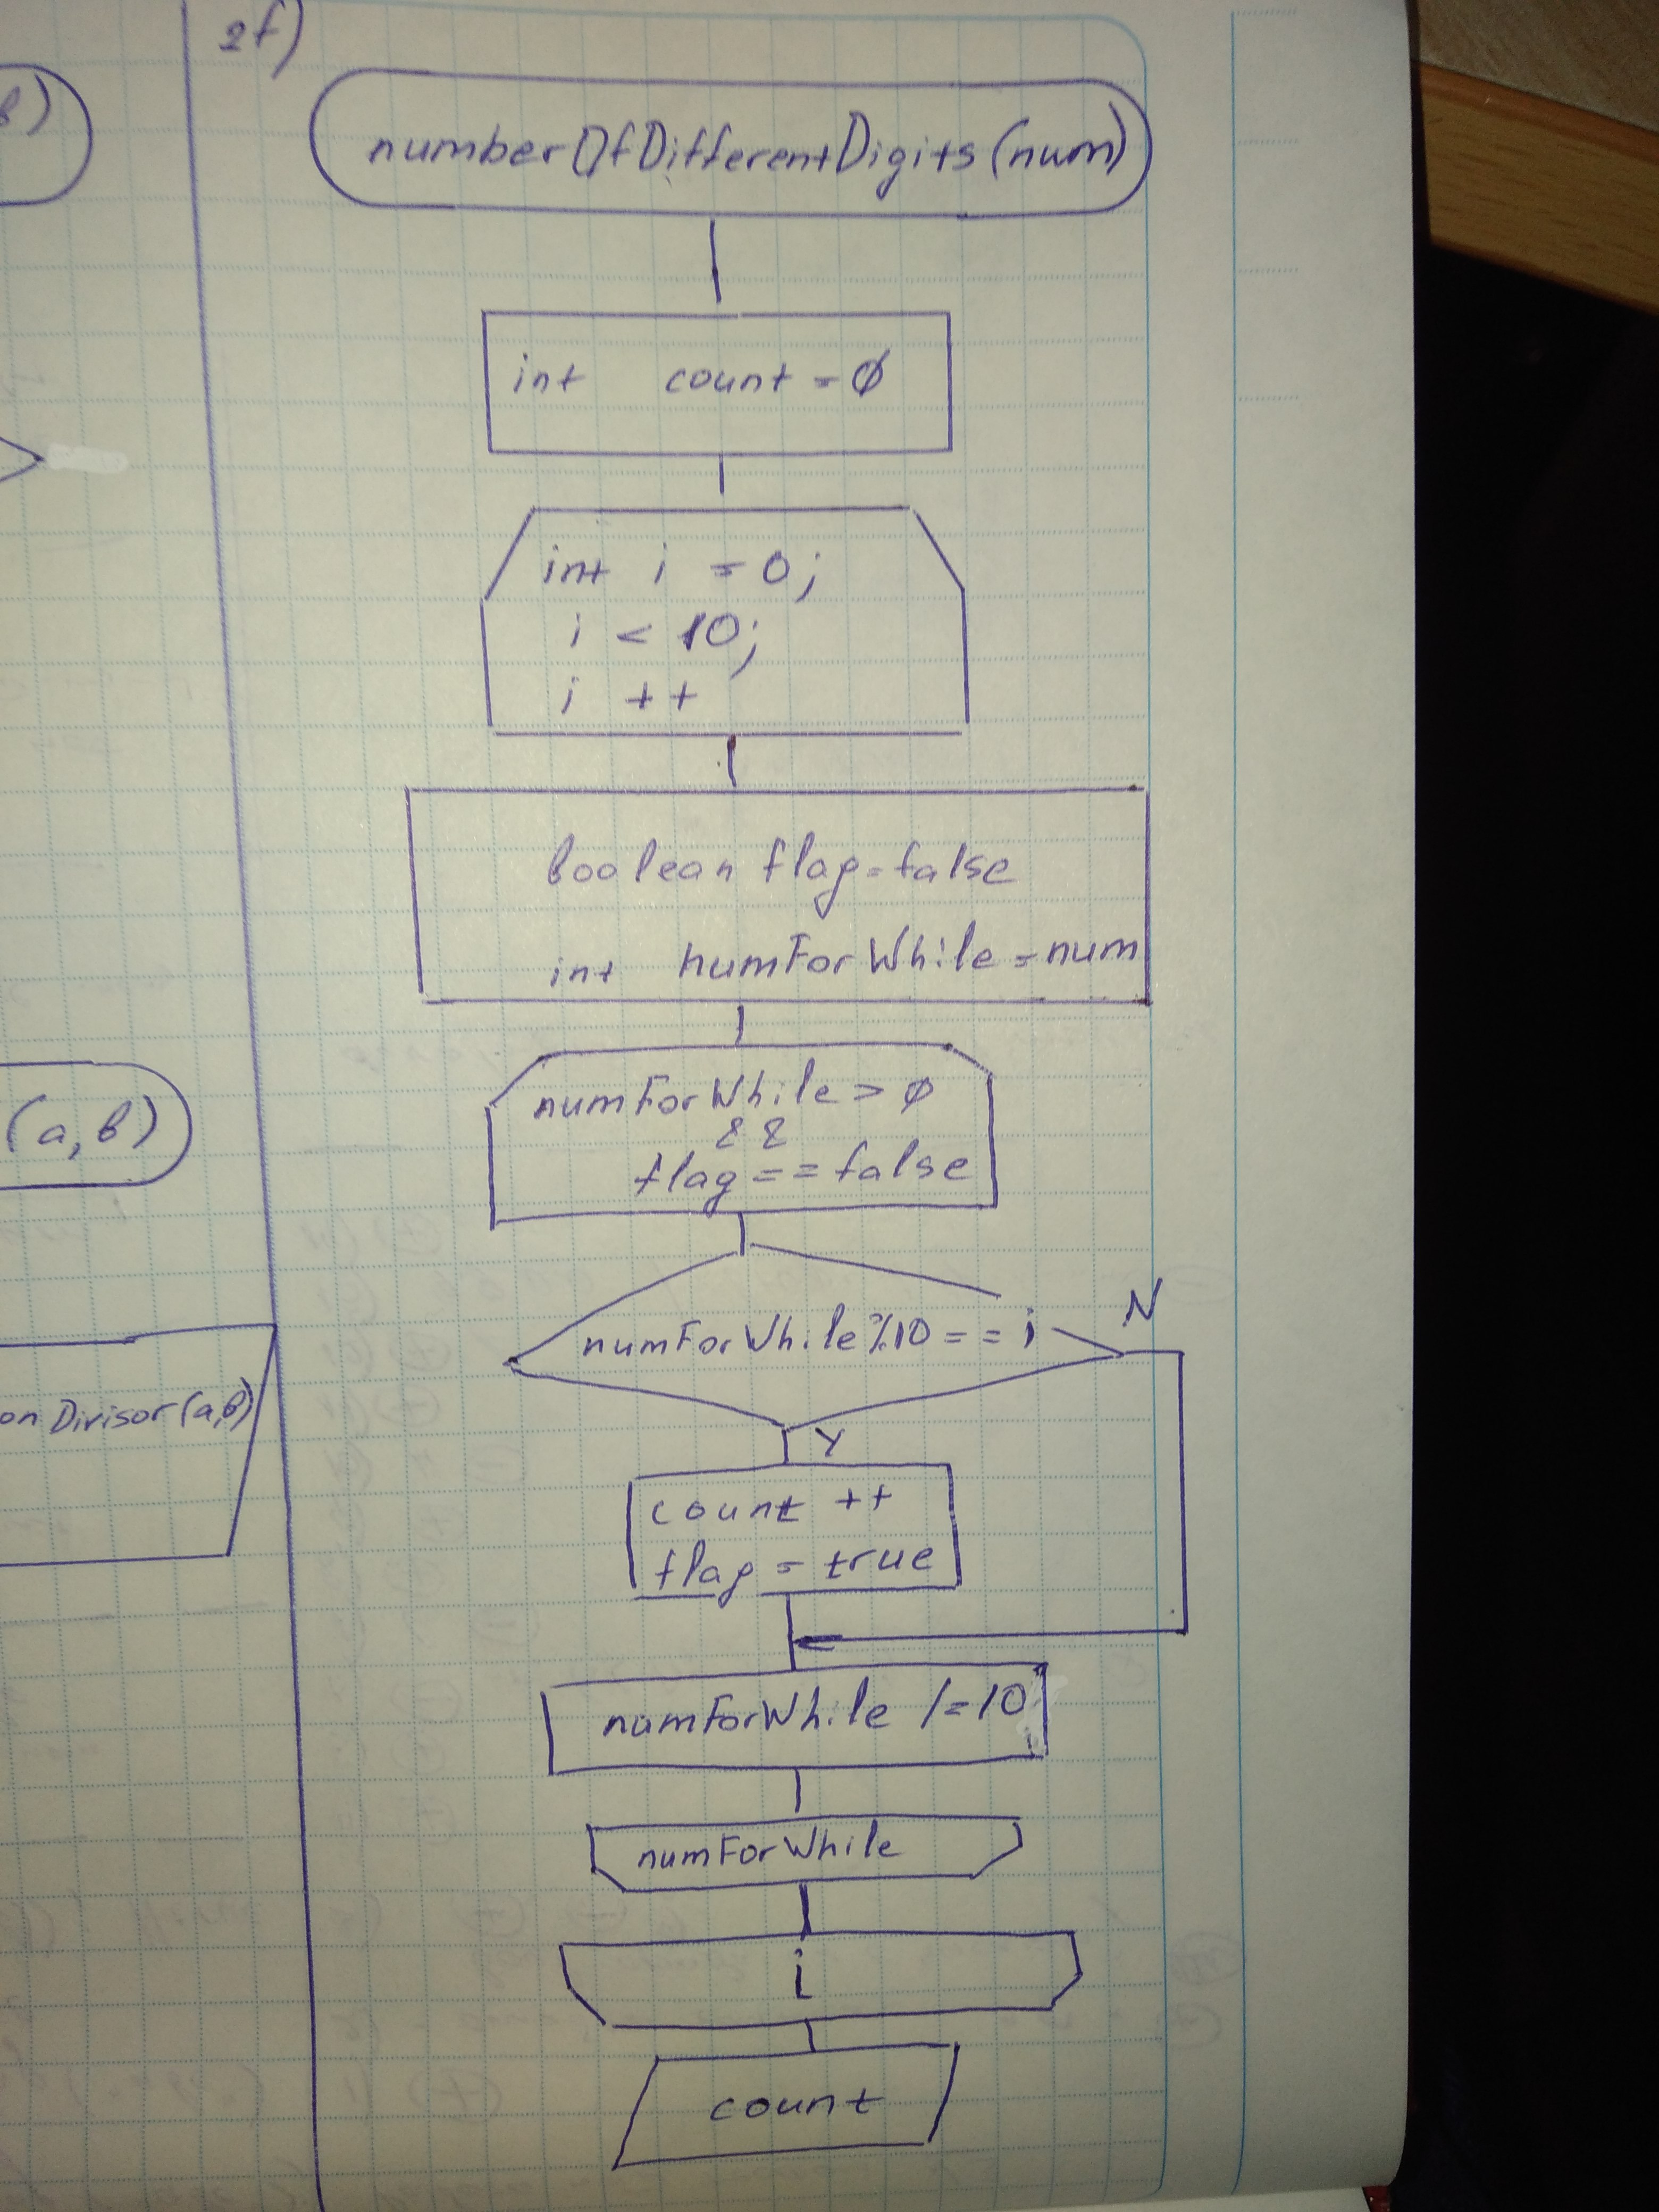 2f)
numberOfDifferentDigits(num)
int count = 0
int i = 0;
i < 10;
i ++
boolean flag = false
int numForWhile = num
numForWhile > 0
&&
flag == false
numForWhile % 10 == i
N
Y
count ++
flag = true
numForWhile /= 10
numForWhile
i
count
b)
(a, b)
on Divisor(a, b)